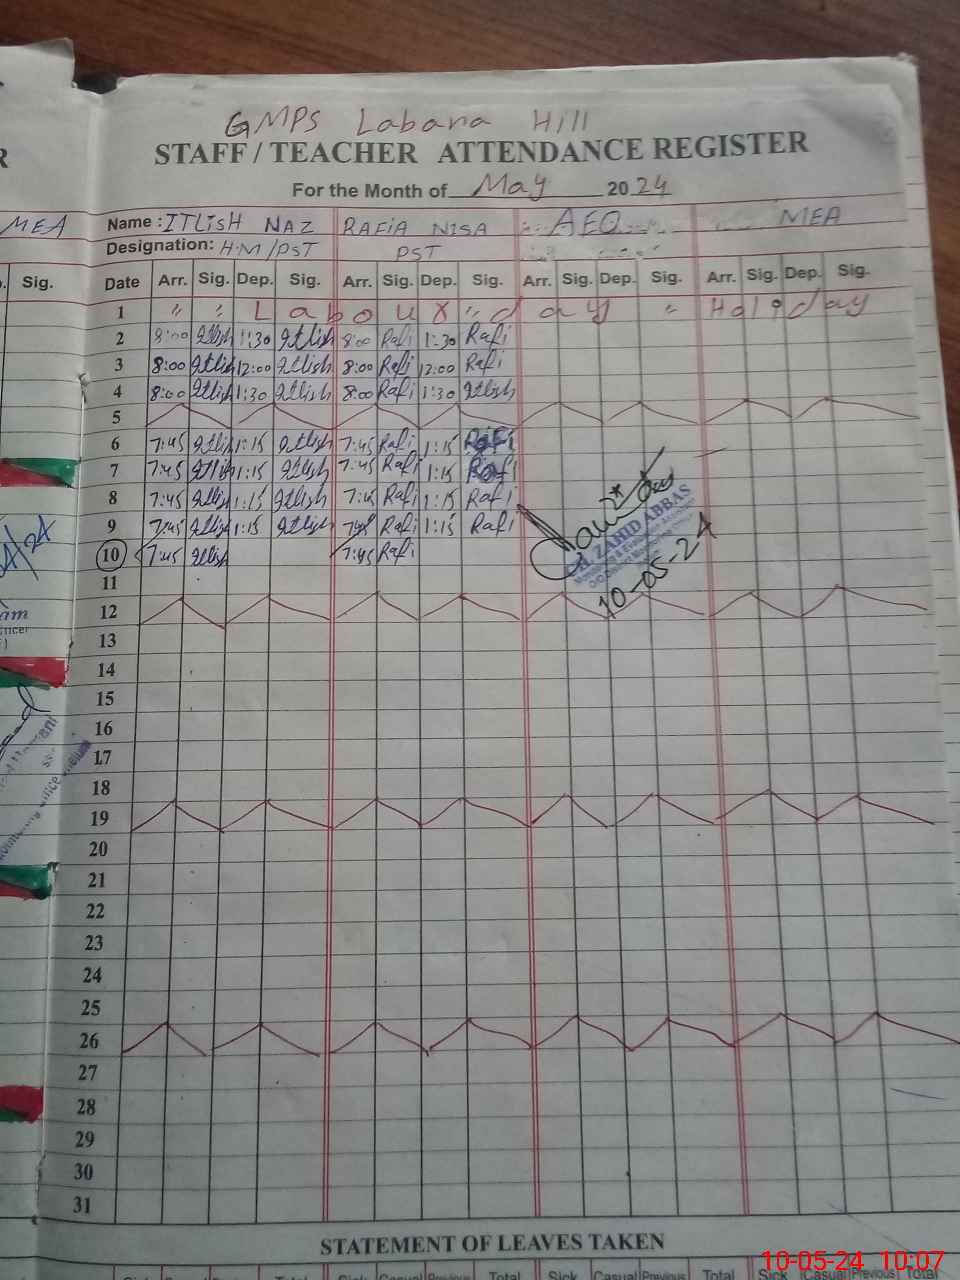 GMPS Labana Hill
STAFF / TEACHER ATTENDANCE REGISTER
For the Month of May 2024
MEA Name : ITLISH NAZ RAFIA NISA AEO MEA
Designation: H.M/PST PST
Sig. Date Arr. Sig. Dep. Sig. Arr. Sig. Dep. Sig. Arr. Sig. Dep. Sig. Arr. Sig. Dep. Sig.
1 " " Labour " day " Holiday
2 8:00 Itlish 1:30 Itlish 8:00 Rafi 1:30 Rafi
3 8:00 Itlish 12:00 Itlish 8:00 Rafi 12:00 Rafi
4 8:00 Itlish 1:30 Itlish 8:00 Rafi 1:30 Itlish
5
6 7:45 Itlish 1:15 Itlish 7:45 Rafi 1:15 Rafi
7 7:45 Itlish 1:15 Itlish 7:45 Rafi 1:15 Rafi
8 7:45 Itlish 1:15 Itlish 7:45 Rafi 1:15 Rafi
9 7:45 Itlish 1:15 Itlish 7:45 Rafi 1:15 Rafi
10 7:45 Itlish 7:45 Rafi
ZAHID ABBAS
10-05-24
11
12
13
14
15
16
17
18
19
20
21
22
23
24
25
26
27
28
29
30
31
STATEMENT OF LEAVES TAKEN
Sick Casual Previous Total Sick Casual Previous Total Sick Casual Previous Total Sick Casual Previous Total
10-05-24 10:07